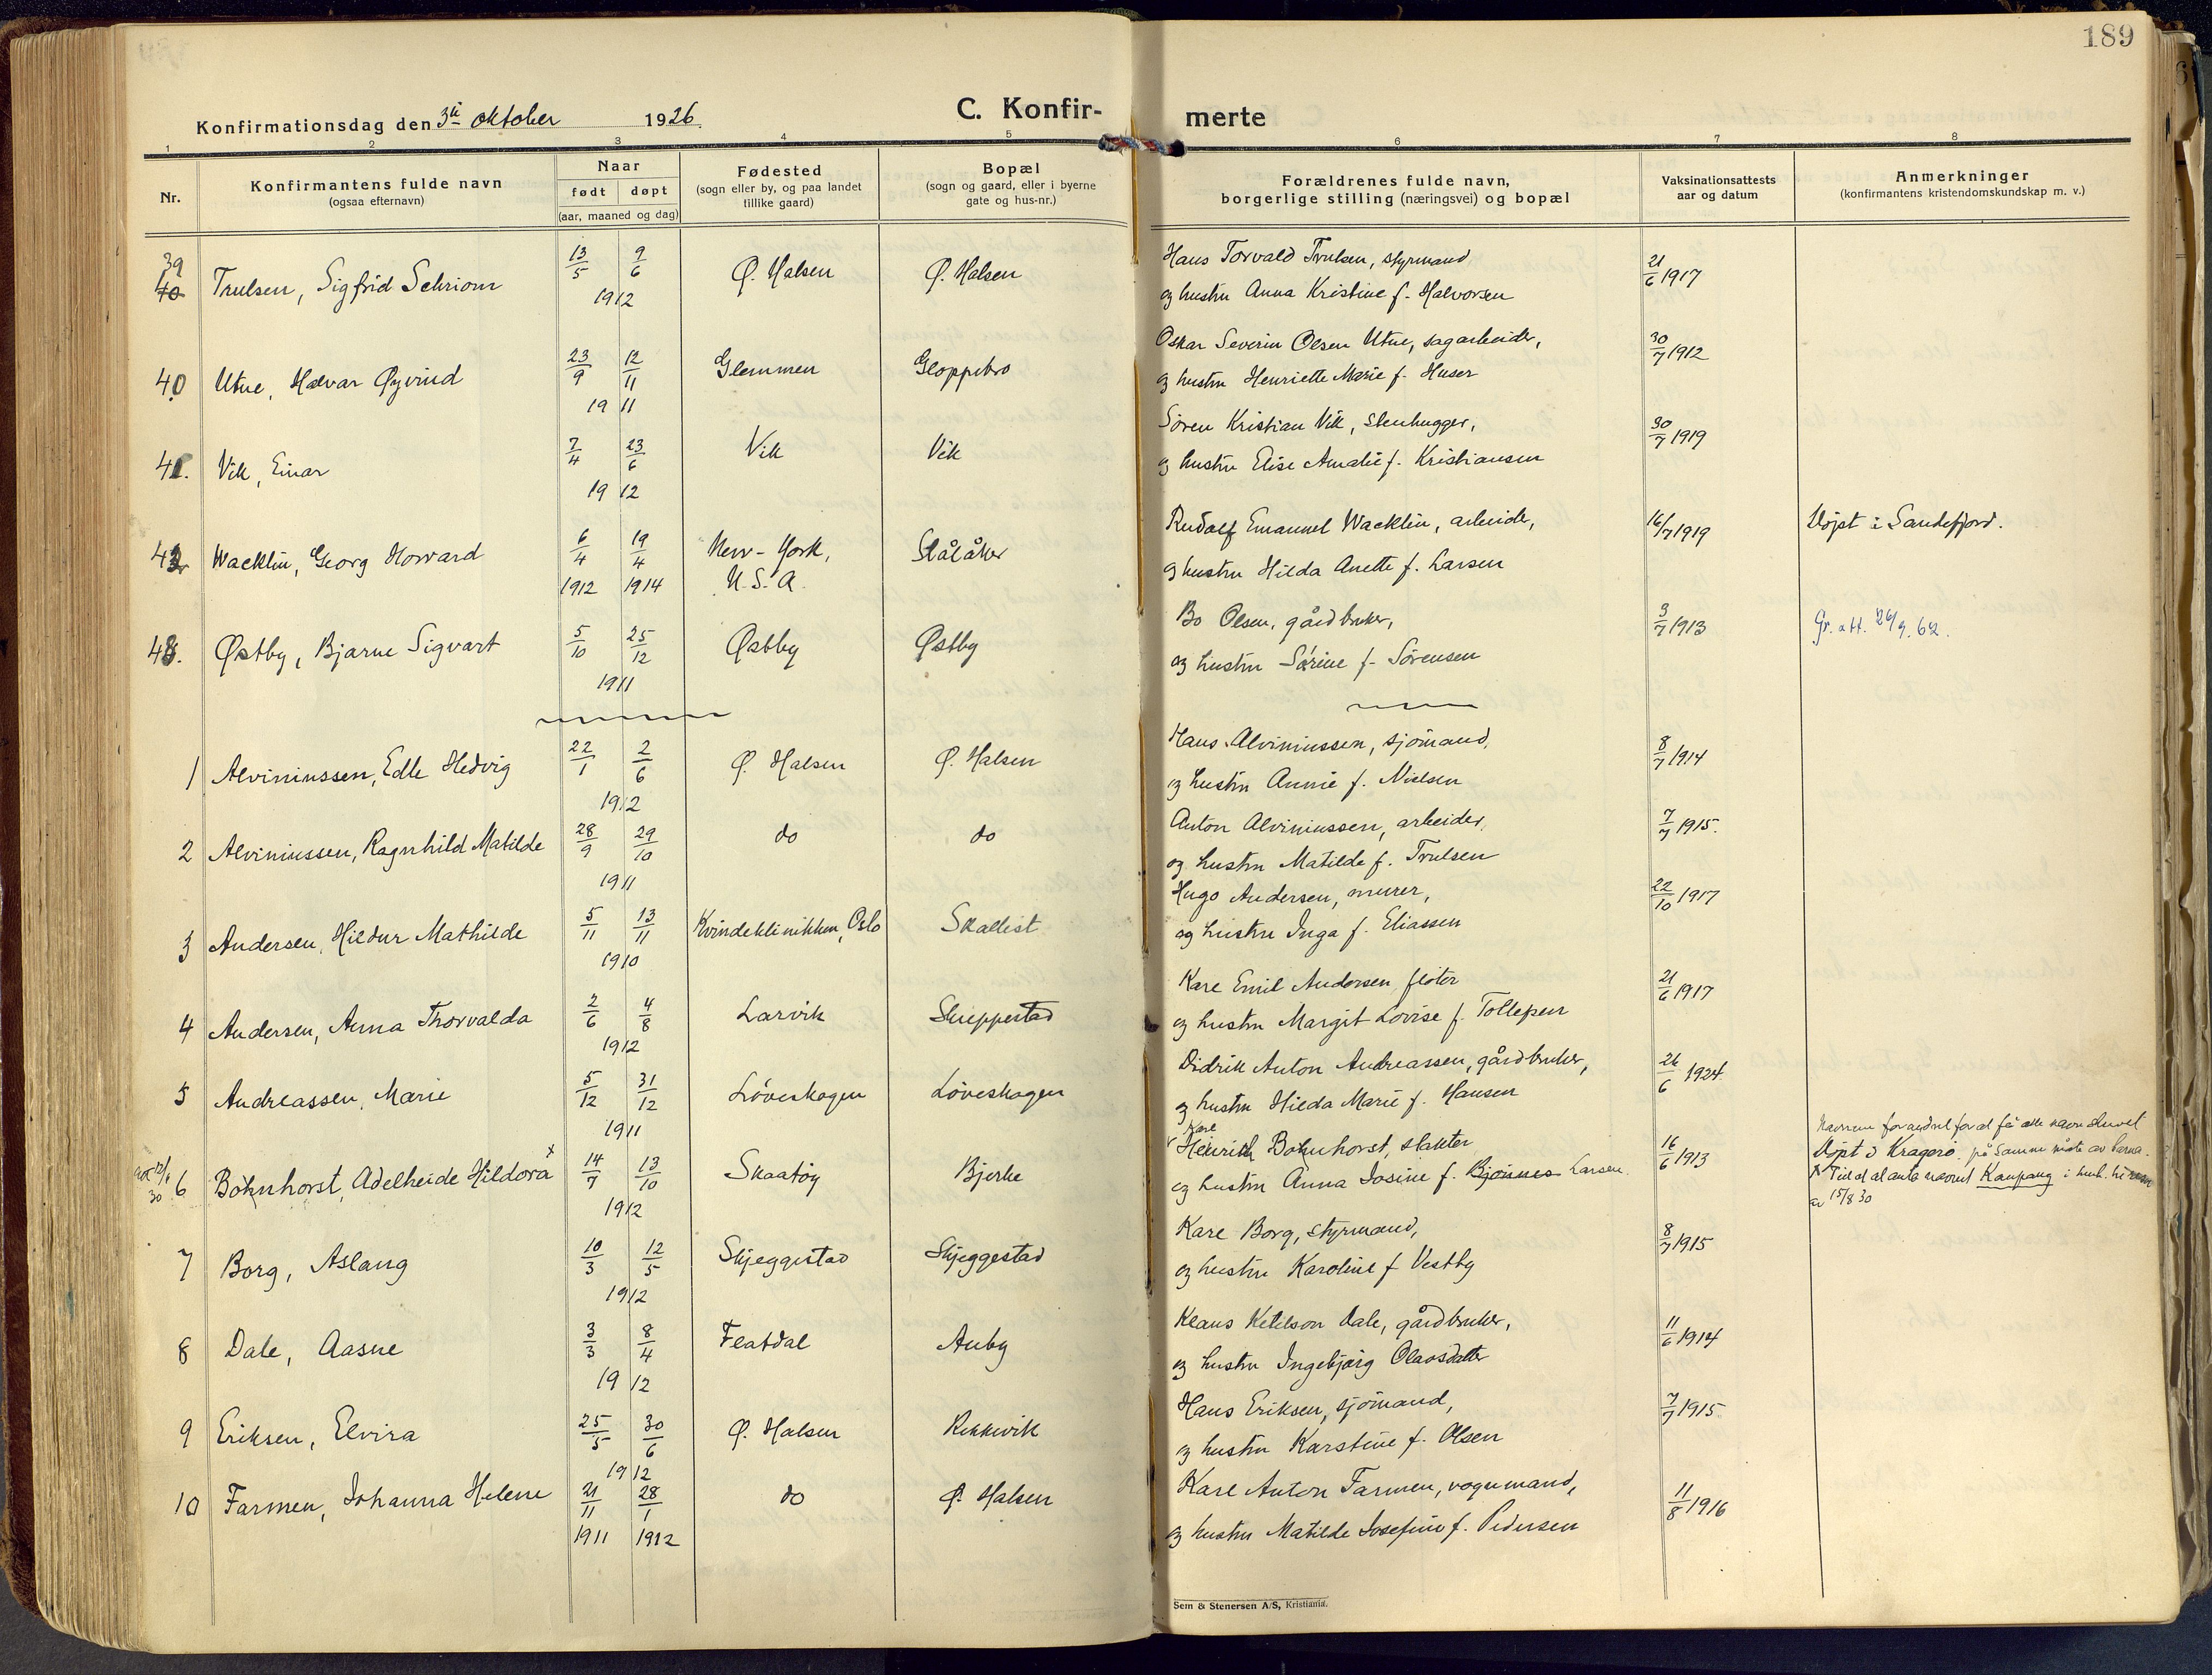 189
Konfirmationsdag den 3di oktober 1926.
C. Konfir-
merte
1 2 3 4 5 6 7 8
Nr.
Konfirmantens fulde navn
(ogsaa efternavn)
Naar
født døpt
(aar, maaned og dag)
Fødested
(sogn eller by, og paa landet
tillike gaard)
Bopæl
(sogn og gaard, eller i byerne
gate og hus-nr.)
Forældrenes fulde navn,
borgerlige stilling (næringsvei) og bopæl
Vaksinationsattests
aar og datum
Anmerkninger
(konfirmantens kristendomskundskap m. v.)
39 40 Trulsen, Sigfrid Schriom 13/5 9/6 1912 Ø. Halsen Ø. Halsen
Hans Torvald Trulsen, styrmand
og hustru Anna Kristine f. Halvorsen
21/6 1917
40 Utne, Halvar Øyvind 23/9 12/11 1911 Glemmen Gloppebro
Oskar Severin Olsen Utne, sagarbeider,
og hustru Henriette Marie f. Huser
30/7 1912
41. Vik, Einar 7/4 23/6 1912 Vik Vik
Søren Kristian Vik, stenhugger,
og hustru Elise Amalie f. Kristiansen
30/7 1919
42 Wacklin, Georg Howard 6/4 1912 19/4 1914 New-York, U.S.A. Stålåker
Rudolf Emanuel Wacklin, arbeider,
og hustru Hilda Anette f. Larsen
16/7 1919
Døpt i Sandefjord.
43. Østby, Bjarne Sigvart 5/10 25/12 1911 Østby Østby
Bo Olsen, gårdbruker,
og hustru Sørine f. Sørensen
3/7 1913
Gr. att. 26/9. 62.
1 Alviniussen, Edle Hedvig 22/1 2/6 1912 Ø. Halsen Ø. Halsen
Hans Alviniussen, sjømand,
og hustru Annie f. Nielsen
8/7 1914
2 Alviniussen, Ragnhild Matilde 28/9 29/10 1911 do do
Anton Alviniussen, arbeider,
og hustru Matilde f. Trulsen
7/7 1915.
3 Andersen, Hildur Mathilde 5/11 13/11 1910 Kvindeklinikken, Oslo Skallist
Hugo Andersen, murer,
og hustru Inga f. Eliassen
22/10 1917
4 Andersen, Anna Thorvalda 2/6 4/8 1912 Larvik Skreppestad
Karl Emil Andersen, fløter
og hustru Margit Lovise f. Tollefsen
21/6 1917
5 Andreassen, Marie 5/12 31/12 1911 Løveskogen Løveskogen
Didrik Anton Andreassen, gårdbruker,
og hustru Hilda Marie f. Hansen
26/6 1924
6 Bohnhorst, Adelheide Hildora x 14/7 13/10 1912 Skaatøy Bjerke
Karl
Heinrich Bohnhorst, slakter
og hustru Anna Josine f. Bjønnes Larsen.
16/6 1913
Døpt i Kragerø. på samme måte av barna.
x Tillatt anta navnet Kaupang
15/8 30
7 Borg, Aslaug 10/3 12/5 1912 Skjeggestad Skjeggestad
Karl Borg, styrmand,
og hustru Karoline f Vestby
8/7 1915
8 Dale, Aasne 3/3 8/4 1912 Flatdal Auby
Klaus Ketilson Dale, gårdbruker,
og hustru Ingebjørg Olavsdatter
11/6 1914
9 Eriksen, Elvira 25/5 30/6 1912 Ø. Halsen Rekkevik
Hans Eriksen, sjømand,
og hustru Karstine f. Olsen
7/7 1915
10 Farmen, Johanna Helene 21/11 1911 28/1 1912 do Ø. Halsen
Karl Anton Farmen, vognmand,
og hustru Matilde Josefine f. Pedersen
11/8 1916
Sem & Stenersen A/S, Kristiania.